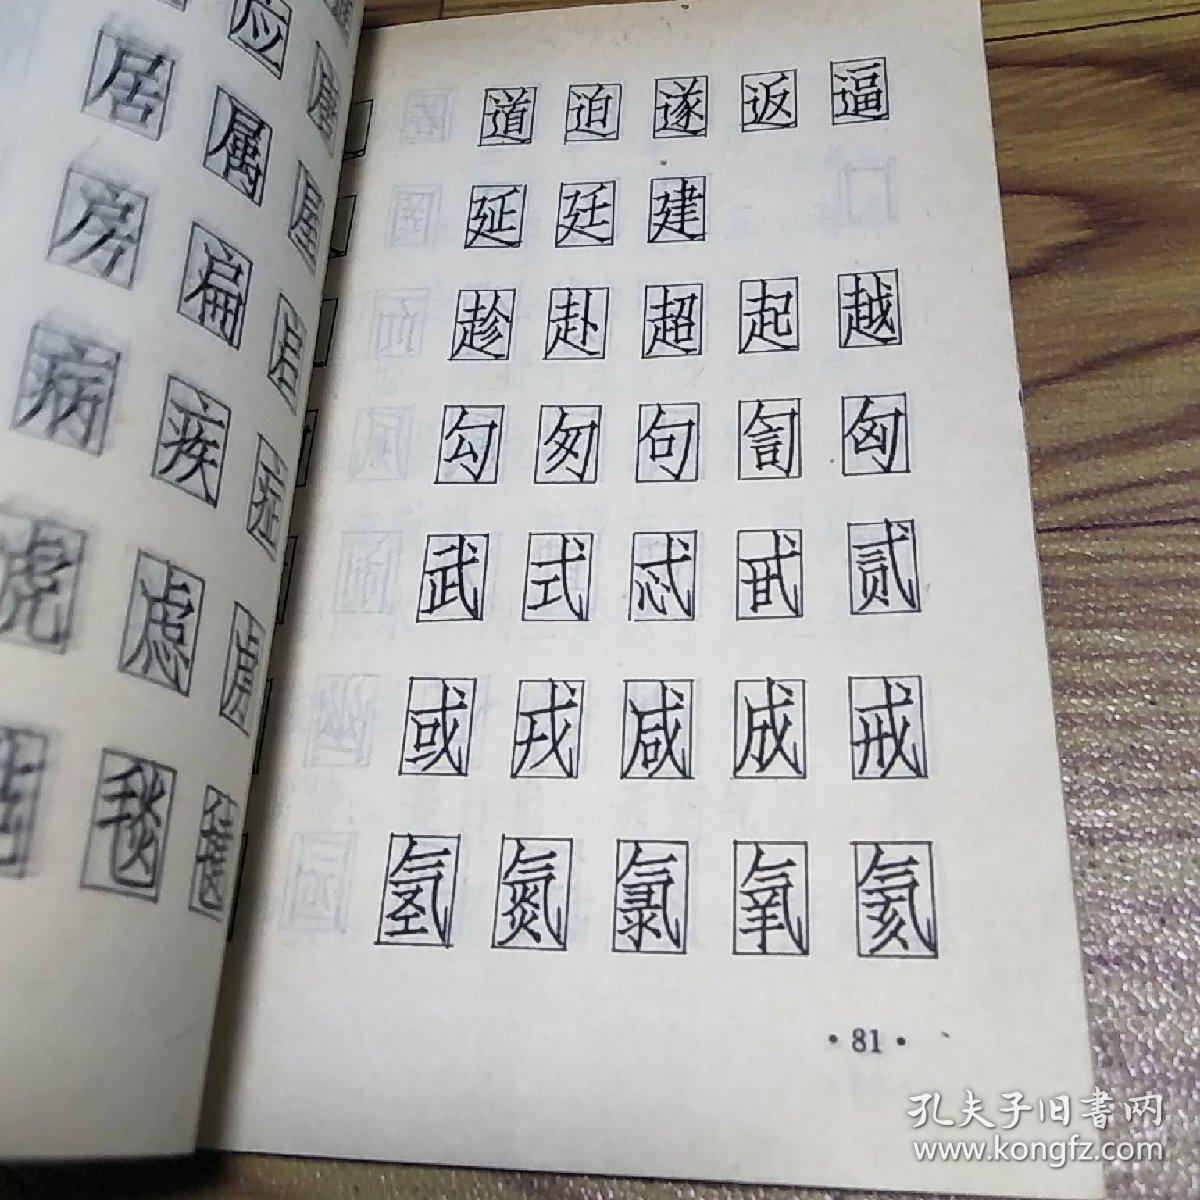 应
居 属
房 扁
病 疾 症
虎 虑
毯
道 迫 遂 返 逼
延 廷 建
趁 赴 超 起 越
勾 匆 句 訇 匈
武 式 忒 甙 贰
或 戎 咸 成 戒
氢 氮 氯 氧 氦
·81·
孔夫子旧書网
www.kongfz.com